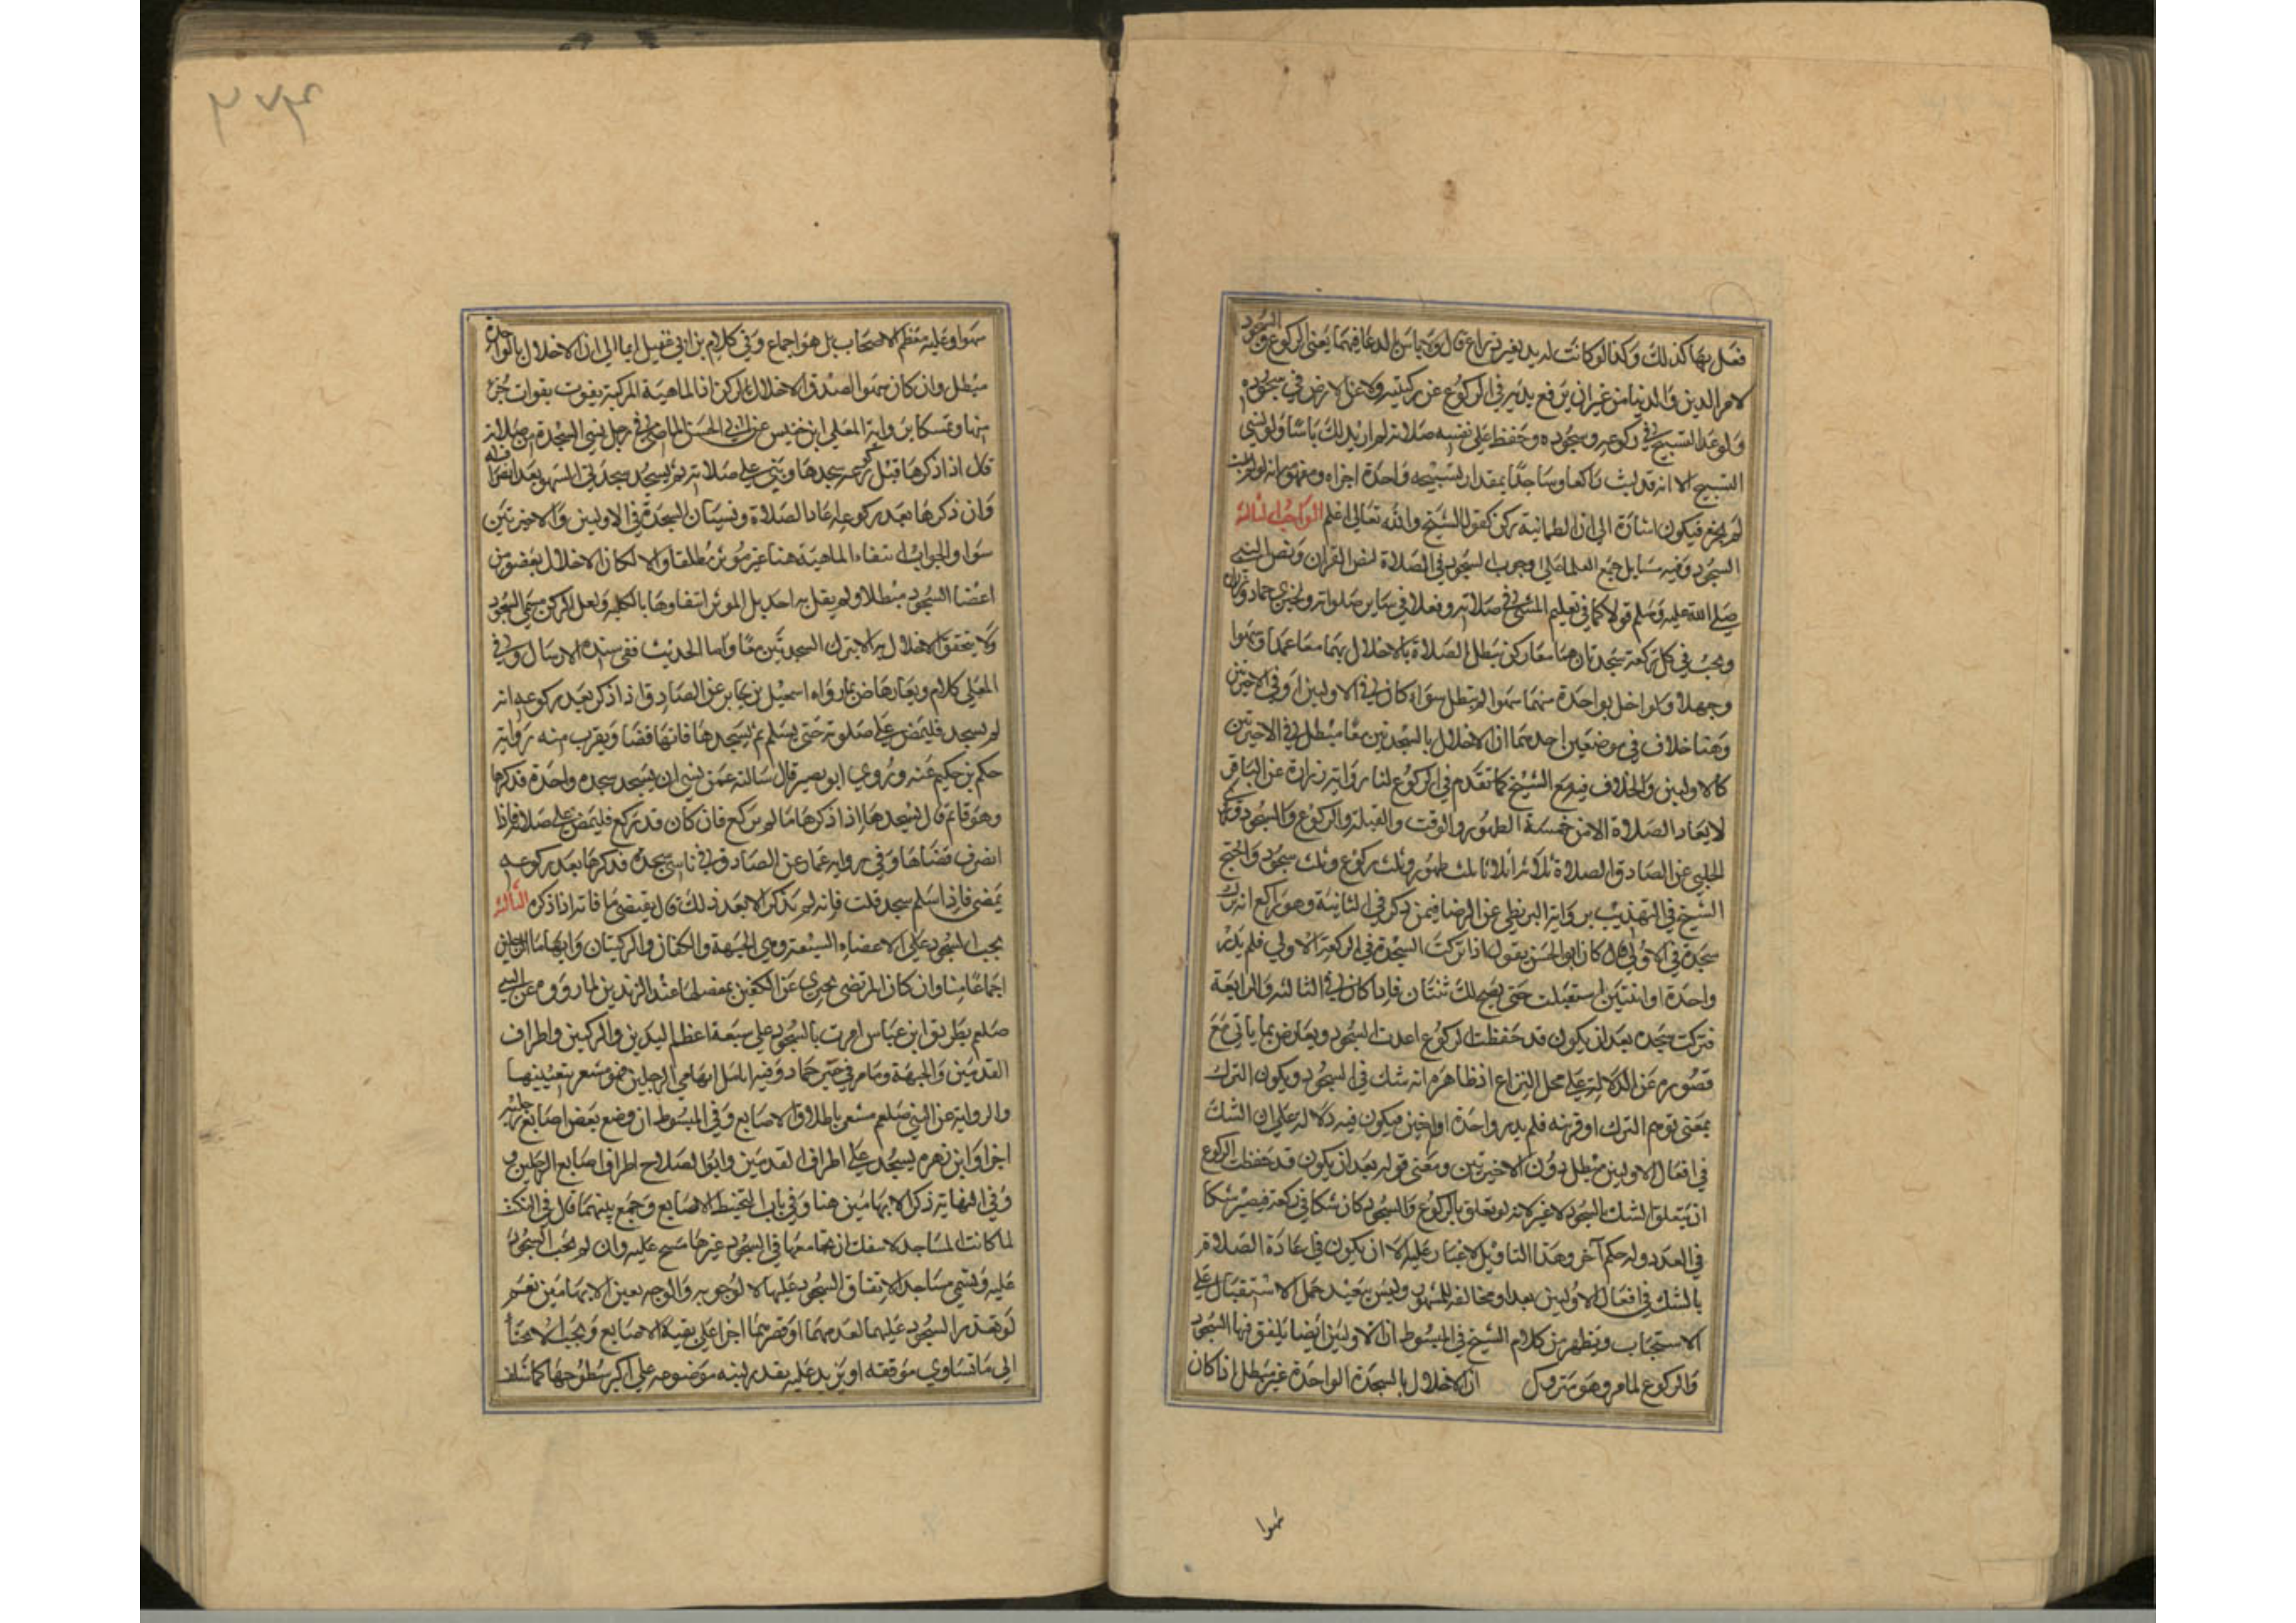 فعل بهما كذلك وكذا لو كانت له يد بغير ذراع قال ولا باس بالدعا فيهما يعني الركوع والسجود
لامر الدين والدنيا من غير ان يرفع يديه في الركوع عن ركبتيه ولا عن الارض في سجوده
ولو عد التسبيح في ركوعه وسجوده وحفظ على نفسه صلاته لم ار بذلك باسا ولو نسي
التسبيح الا انه قد لبث راكعا وساجدا بمقدار تسبيحه واحدة اجزاه ومفهومه انه لو لم يلبث
لم يجز فيكون اشارة الى ان الطمانية ركن كقول الشيخ والله تعالى اعلم الواجب الثالث
السجود وفيه مسايل جمع العلما على وجوب السجود في الصلاة لنص القران ونص النبي
صلى الله عليه وسلم قولا كما في تعليم المسي في صلاته وفعلا في ساير صلواته ولخبري حماد وزراره
ويجب في كل ركعة سجدتان هما معا ركن تبطل الصلاة بالاخلال بهما معا عمدا وسهوا
وجهلا ولو اخل بواحدة منهما سهوا لم تبطل سواء كان في الاوليين او في الاخيرتين
وهنا خلاف في موضعين احدهما ان الاخلال بالسجدتين معا مبطل في الاخيرتين
كالاوليين والخلاف فيه مع الشيخ كما تقدم في الركوع لنا رواية زرارة عن الباقر
لا يعاد الصلاة الا من خمسة الطهور والوقت والقبلة والركوع والسجود وكما
الحلبي عن الصادق الصلاة ثلاثة اثلاث ثلث طهور وثلث ركوع وثلث سجود واحتج
الشيخ في التهذيب برواية البزنطي عن الرضا فيمن ذكر في الثانية وهو راكع انه ترك
سجدة في الاولى قال كان ابو الحسن يقول اذا تركت السجدة في الركعة الاولى فلم يدر
واحدة او اثنتين استقبلت حتى يصح لك ثنتان فاذا كان في الثالثه والرابعة
فتركت سجده بعد ان يكون قد حفظت الركوع اعدت السجود ويعارض بما ياتي مع
قصوره عن الدلالة على محل النزاع اذ ظاهره انه شك في السجود ويكون الترك
بمعنى توهم الترك او قربه فلم يدر واحدة او اثنين فيكون فيه دلاله على ان الشك
في افعال الاوليين مبطل دون الاخيرتين ومعنى قوله بعد ان يكون قد حفظت الركوع
ان يتعلق الشك بالسجود لا غير لانه لو تعلق بالركوع والسجود كان شكا في ركعة فيصير شكا
في العدد وله حكم آخر وهذا التاويل لا غبار عليه الا ان يكون في اعادة الصلاة
بالشك في افعال الاوليين بعدا ومخالفه للمشهور وليس ببعيد حمل الاستقبال على
الاستحباب ويظهر من كلام الشيخ في المبسوط ان الاوليين ايضا يلفق فيها السجود
والركوع لما مر وهو متروك ان الاخلال بالسجدة الواحدة غير مبطل اذا كان
سهوا
٣٧٤
سهوا وعليه معظم الاصحاب بل هو اجماع وفي كلام بن ابي عقيل ايما الى ان الاخلال بالواحدة
مبطل وان كان سهوا لصدق الاخلال بالركن اذ الماهية المركبة يفوت بفوات جزء
منها وتمسكا برواية المعلى ابن خنيس عن ابي الحسن الماضي في رجل نسي السجدة من صلاته
قال اذا ذكرها قبل ركوعه سجدها وبنى على صلاته ثم يسجد سجدتي السهو بعد انصرافه
وان ذكرها بعد ركوعه اعاد الصلاة ونسيان السجدة في الاوليين والاخيرتين
سوا والجواب انتفاء الماهية هنا غير موثر مطلقا والا لكان الاخلال بعضو من
اعضا السجود مبطلا ولم يقل به احد بل الموثر انتفاوها بالكليه ولعل الركن مسمى السجود
ولا يتحقق الاخلال به الا بترك السجدتين معا واما الحديث ففي سنده الارسال وفي
المعلى كلام ويعارضها ما رواه اسمعيل بن جابر عن الصادق اذا ذكر بعد ركوعه انه
لم يسجد فليمض على صلوته حتى يسلم ثم يسجدها فانها قضا ويقرب منه رواية
حكم بن حكيم عنه وروى ابو بصير قال سالته عمن نسي ان يسجد سجده واحدة فذكرها
وهو قائم قال يسجدها اذا ذكرها ما لم يركع فان كان قد ركع فليمض على صلاته فاذا
انصرف قضاها وفي رواية عمار عن الصادق في ناسي سجدة فذكرها بعد ركوعه
يمضي فاذا سلم سجد قلت فانه لم يذكر الا بعد ذلك قال يقضي ما فاته اذا ذكره الثالثه
يجب السجود على الاعضاء السبعة وهي الجبهة والكفان والركبتان وابهاما الرجلين
اجماعا منا وان كان المرتضى يجتزي عن الكفين بمفصلها عند الزندين لما روو عن النبي
صلعم بطريق ابن عباس امرت بالسجود على سبعة اعظم اليدين والركبتين واطراف
القدمين والجبهة وما مر في خبر حماد وفيه انامل ابهامي الرجلين فهو مشعر بتعيينها
والرواية عن النبي صلعم مشعر باطلاق الاصابع وفي المبسوط ان وضع بعض اصابع رجليه
اجزا وابن زهره يسجد على اطراف القدمين وابو الصلاح اطراف اصابع الرجلين و
وفي النهاية ذكر الابهامين هنا وفي باب التحنيط الاصابع وجمع بينهما قال في النكت
لما كانت المساجد لا تنفك ان يجامعها في السجود غيرها مسح عليه وان لم يجب السجود
عليه وتسمي مساجد لاتفاق السجود عليها لا لوجوبه والوجه تعين الابهامين نعم
لو تعذر السجود عليهما لعدمهما او قصرهما اجزا على بقية الاصابع ويجب الانحنا
الى ما تساوي موقفه او يزيد عليه بقدر لبنه موضوعه على اكبر سطوحها كما سلف